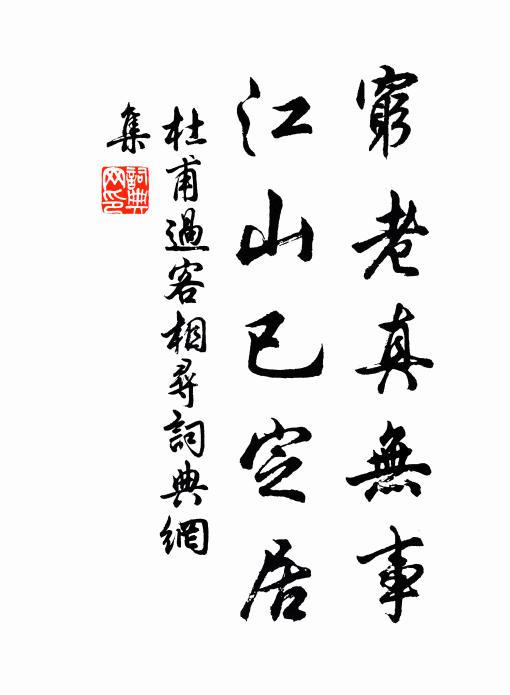 窮老真無事
江山已定居
杜甫過客相尋詞典網
集
詞典网印